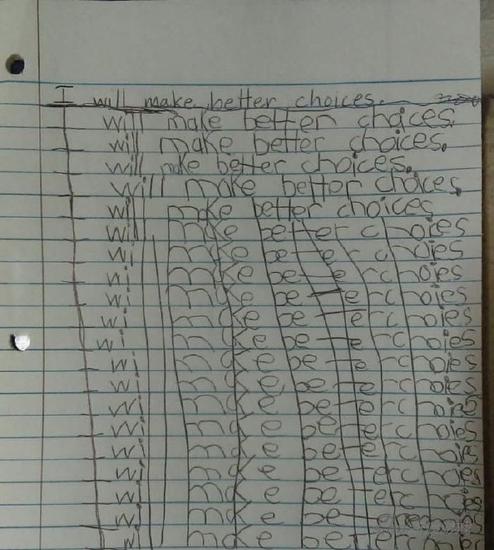 I will make better choices.
I will make better choices.
I will make better choices.
I will make better choices.
I will make better choices.
I will make better choices
I will make better choies
I will make better choies
I will make better choies
I will make better choies
I will make better choies
I will make better choies
I will make better choies
I will make better choies
I will make better choies
I will make better choies
I will make better choies
I will make better choies
I will make better choies
I will make better
I will make better